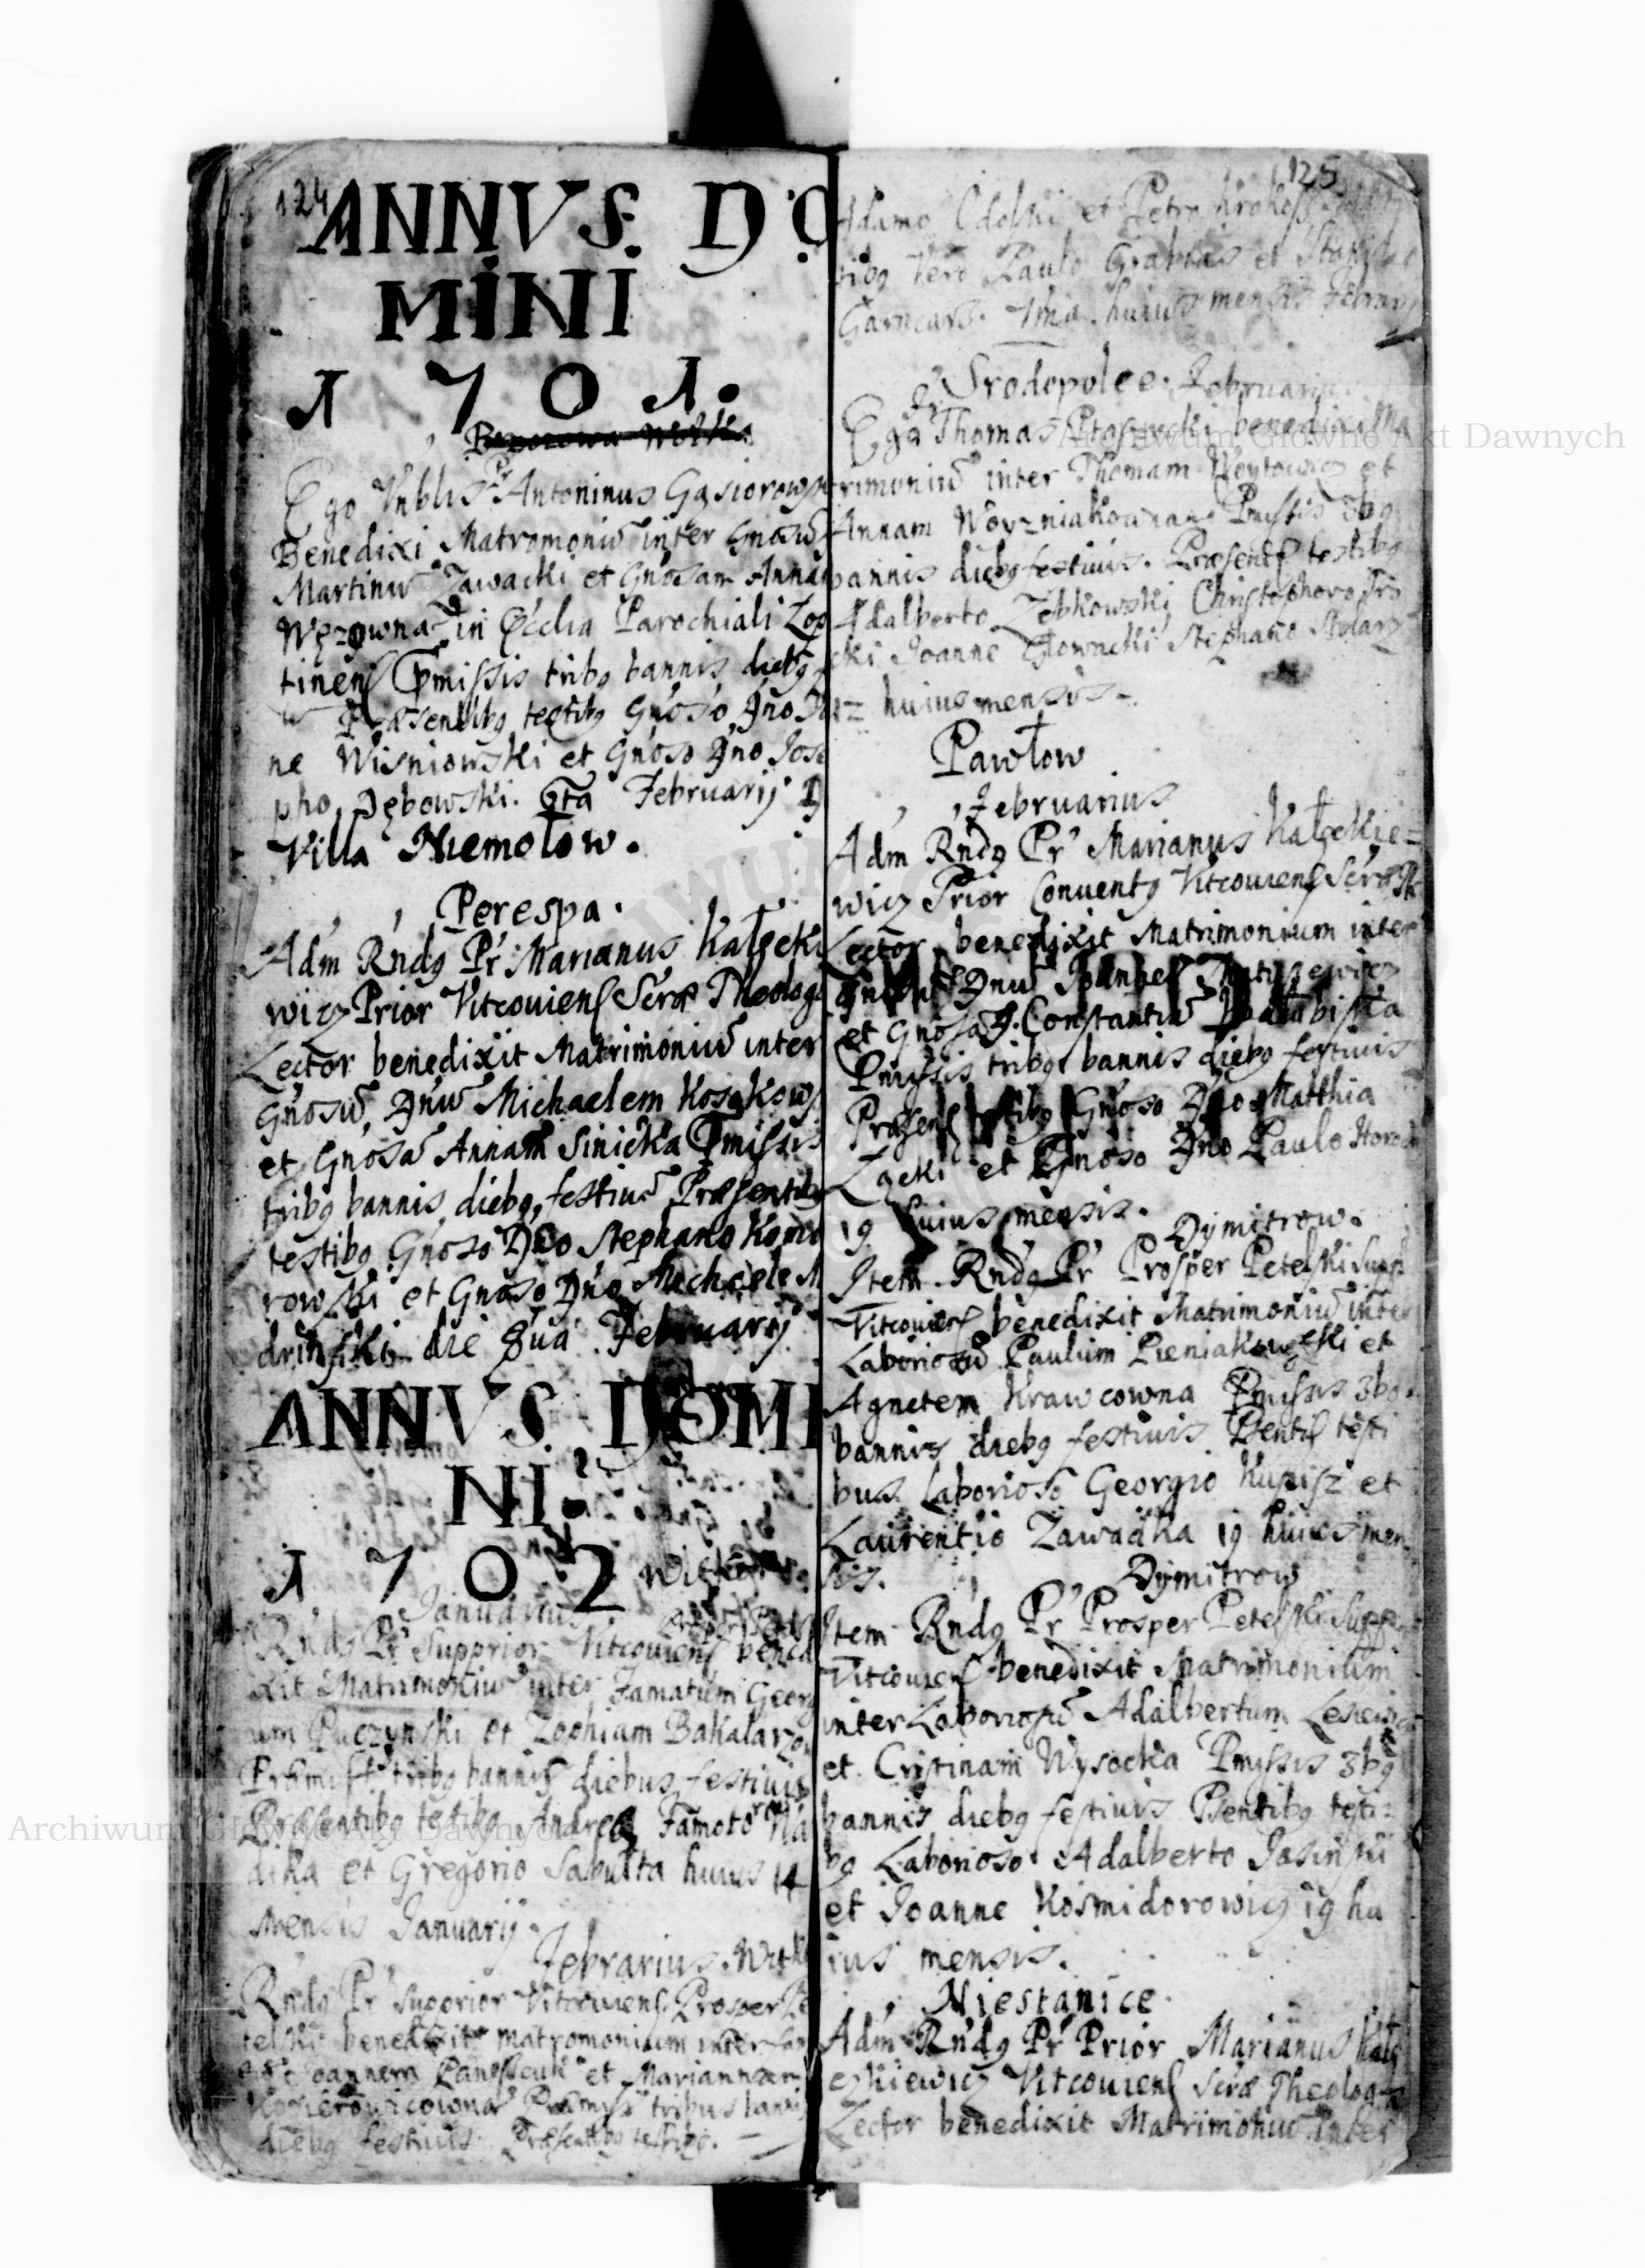 124
ANNVS. DO
MINI
1701.
Ego Vnblis Pr Antoninus Gąsiorows
Benedixi Matromoniũ inter Gnosũ
Martinũ Zawacki et Gnosam Annam
Węzowna in Ecclia Parochiali Lop
tinens Pmissis tribq bannis diebq
Præsentibq testibq Gnoso Dno
ne Wisniowski et Gnoso Dno Jose
pho Dębowski. 6ta Februarij
Villa Niemołow.
Perespa.
Adm Rndq Pr Marianus Kałęcki
wicz Prior Vitcouiens Scræ Theolog
Lector benedixit Matrimoniũ inter
Gnosũ Dnũ Michaelem Koszkows
et Gnosã Annam Sinicka Pmissis
tribq bannis diebq festiuis Præsentibq
testibq Gnoso Dno Stephano Komo
rowski et Gnoso Dno Michaele M
drinski die 8ua Februarij
ANNVS DOMI
NI.
1702 Witkow.
Januarius.
Rndq Pr Supprior Vitcouiens bened
xit Matrimoniũ inter Famatum Georg
ium Puczynski et Zophiam Bakalarzow
Præmiss tribq bannis diebus festiuis
Præsentibq testibq Andrea Famato
dika et Gregorio Sabułta huius 14
mensis Januarij
Febrarius. Witk
Rndq Pr Supprior Vitcouiens Prosper Pe
telski benedixit matromonium inter
Joannem et Mariannam
Præmiss tribus bannis
diebq festiuis Præsentibq testibq.
125
Adamo et Petro
tibq Vero Paulo Grabias et
Garncarz. 7ma huius mensis Februarij
Srodopolce. Februarius.
Ego Pr Thomas Ptaszycki benedixi Ma
trimoniũ inter Thomam Woytowicz et
Annam Woyzniakowna Pmissis 3bq
bannis diebq festiuis. Præsent testibq
Adalberto Zebkowski Christophoro Tro
cki Joanne Głowacki Stephano Stolarz
12 huius mensis.
Pawłow
Februarius
Adm Rndq Pr Marianus Kałęckie=
wicz Prior Conuentq Vitcouiens Scræ
Lector benedixit Matrimonium inter
Dnũ Joannem
et Gnosã D. Constantiũ
Pmissis tribq bannis diebq festiuis
Præsens testibq Gnoso Dno Matthia
Łącki et Gnoso Dno Paulo
19 huius mensis.
Dymitrow.
Item Rndq Pr Prosper Petelski Supp
Vitcouiens benedixit Matrimoniũ inter
Laboriosũ Paulum Pieniakowski et
Agnetem Krawcowna Pmissis 3bq
bannis diebq festiuis Psentis testi
bus Laborioso Georgio Kupisz et
Laurentio Zawadka 19 huius men
sis.
Dymitrow
Item Rndq Pr Prosper Petelski Supp
Vitcouiens benedixit Matrimonium
inter Laboriosũ Adalbertum
et Cristinam Wysocka Pmissis 3bq
bannis diebq festiuis Psentibq testi=
bq Laborioso Adalberto Jasinski
et Joanne Kosmidorowicz 19 hu
ius mensis.
Niestanice.
Adm Rndq Pr Prior Marianus Kałę
ckiewicz Vitcouiens Scræ Theologiæ
Lector benedixit Matrimoniũ inter
Archiwum Główne Akt Dawnych
Archiwum Główne Akt Dawnych